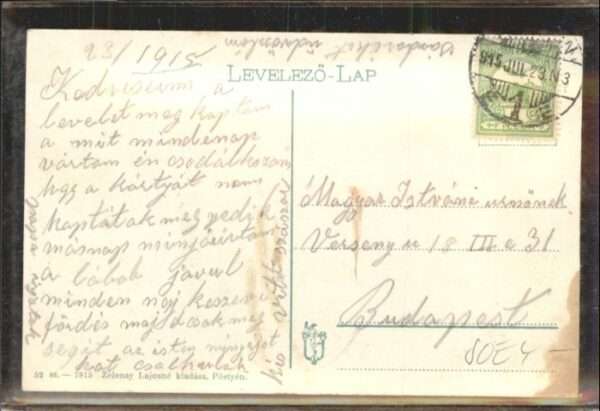 23/1915
LEVELEZŐ-LAP
915 JUL. 23. N3
Kedveseim a
levelet meg kaptam
a mit mindenap
vártam én csodálkozom
hgy a kártyát nem
kaptátok meg pedig
másnap mingjárt
a lábok javul
minden naj
fördés majd csak meg
segit az isten minyáját
Magyar Istváné urnőnek
Verseny u 18 III e 31
Budapest
SOE4-
52 sz. — 1915 Zelenay Lajosné kiadása, Pöstyén.